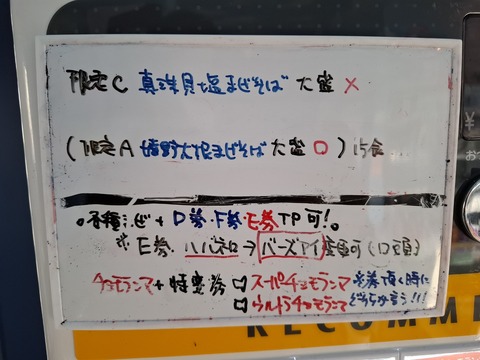 限定C 真珠貝塩まぜそば 大盛 ×
(限定A 大根まぜそば 大盛 □) 15食
D券・F券・E券 TP可!。
※E券 ハバネロ→バーズアイ変更可(口頭)
チョモランマ+特変券 □スーパーチョモランマ
□ウルトラチョモランマ どちらか言う!!!
RECOMM
¥